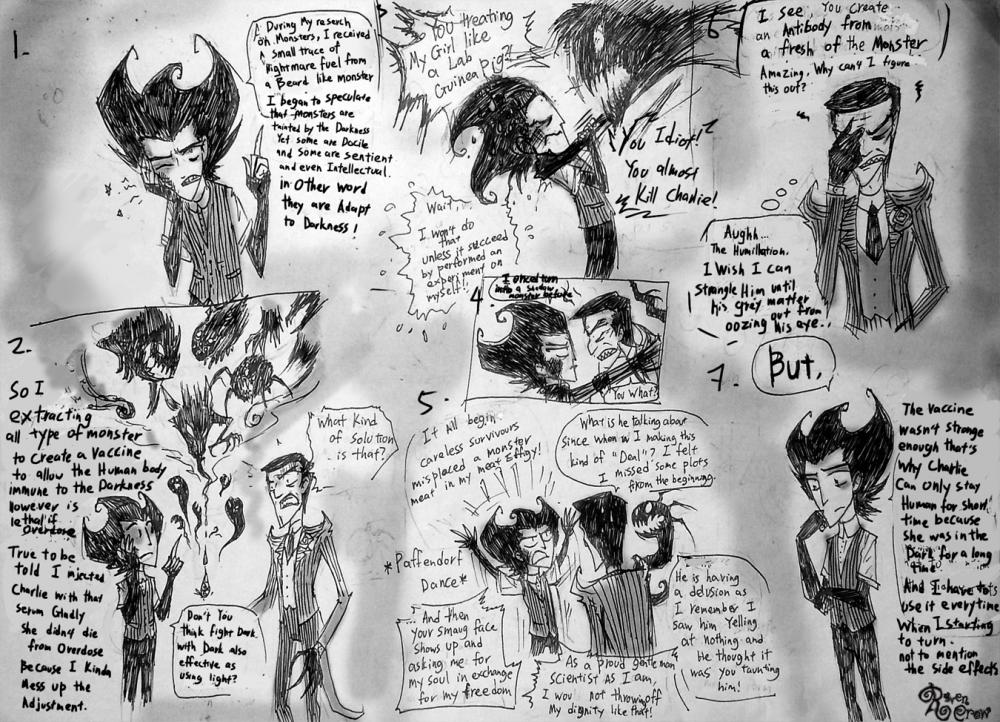 1.
During My reserch
on Monsters, I received
A small trace of
Nightmare fuel from
a Beard like monster
I began to speculate
that monsters are
tainted by the Darkness
Yet some are Docile
and some are sentient
and even Intellectual.
in Other word
they are Adapt
to Darkness!
2.
So I
extracting
all type of monster
to create a vaccine
to allow the Human body
immune to the Darkness
However is
lethal if
Overdose
True to be
told I injected
Charlie with that
serum Gladly
She didn't die
from Overdose
Because I Kinda
Mess up the
Adjustment.
What Kind
of solution
is that?
Don't You
think Fight Dark
with Dark also
effective as
using light?
3
You treating
My Girl like
a Lab
Gruinea pig?!
You Idiot!
You almost
Kill Charlie!
Wait,
I won't do
that
unless it succeed
by performed an
experiment on
myself!
4.
I onced turn
into a shadow
monster before
You What?
5.
It All begin
careless survivours
misplaced a monster
meat in my meat effigy!
What is he talking about
since when w I making this
kind of "Deal"? I felt
I missed some plots
from the beginning.
*Paffendorf
Dance*
...And then
your smaug face
shows up and
asking me for
my soul in exchange
for my freedom
As a proud gentleman
scientist As I am,
I wou not throw off
My dignity like that!
He is having
a delusion as
I remember I
saw him yelling
at nothing and
He thought it
was you taunting
him!
6
I see, You create
an Antibody from
a fresh of the Monster
Amazing, Why can't I figure
this out?
Aughh...
The Humillation.
I Wish I can
Strangle Him until
his grey matter
oozing out from
his eye..
7.
But,
The Vaccine
wasn't stronge
enough that's
why Charlie
Can only stay
Human for short
time because
she was in the
Dark for a long
time
And I have to
use it everytime
When I starting
to turn.
not to mention
the side effects
Raven